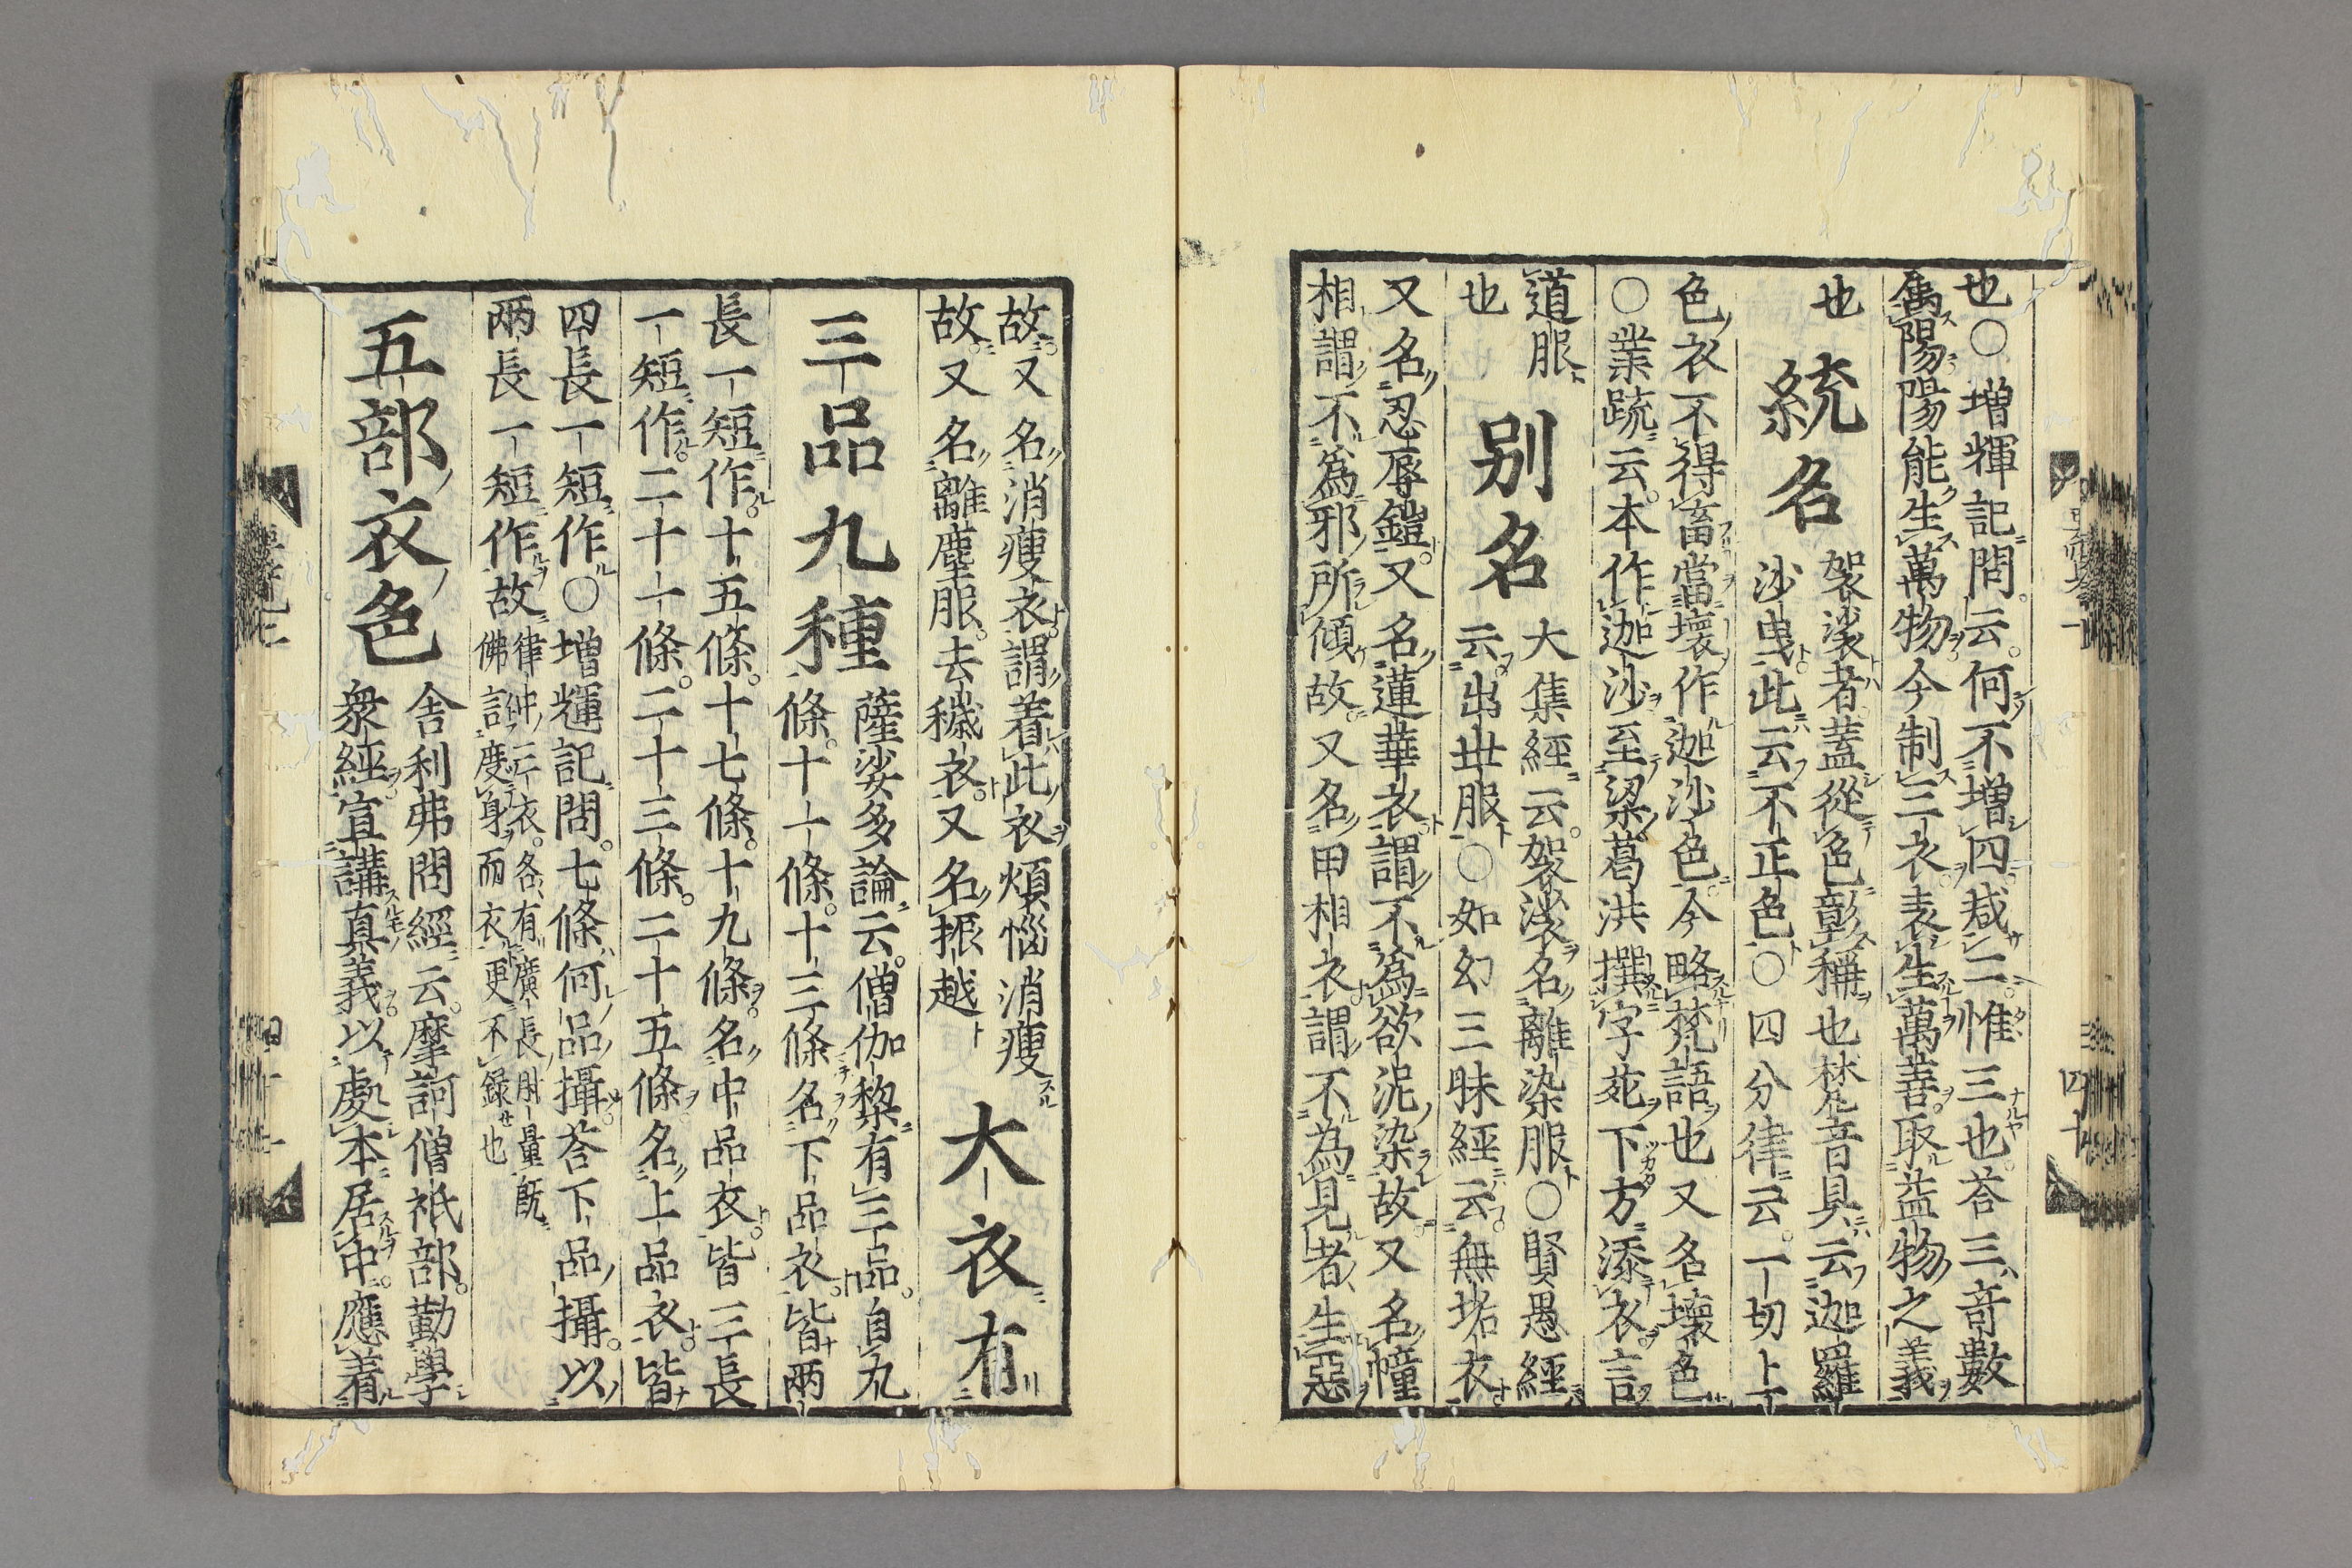 也○增輝記問云何不增四減二惟三也荅三奇數
屬陽陽能生萬物今制三衣表生萬善取益物之義
也
統名
袈裟者蓋從色彰稱也梵音具云迦羅
沙曳此云不正色○四分律云一切上
色衣不得畜當壞作迦沙色今略梵語也又名壞色
○業疏云本作迦沙至梁葛洪撰字苑下方添衣言
道服
也
别名
大集經云袈裟名離染服○賢愚經
云出世服○如幻三昧經云無垢衣
又名忍辱鎧又名蓮華衣謂不為欲泥染故又名幢
相謂不為邪所傾故又名甲相衣謂不為見者生惡
故又名消瘦衣謂着此衣煩惱消瘦
故又名離塵服去穢衣又名振越
大衣有
三品九種
薩婆多論云僧伽黎有三品自九
條十一條十三條名下品衣皆兩
長一短作十五條十七條十九條名中品衣皆三長
一短作二十一條二十三條二十五條名上品衣皆
四長一短作○增輝記問七條何品攝荅下品攝以
兩長一短作故
律中三衣各有廣長肘量既
佛言度身而衣更不録也
五部衣色
舎利弗問經云摩訶僧祇部勤學
衆經宣講真義以處本居中應着